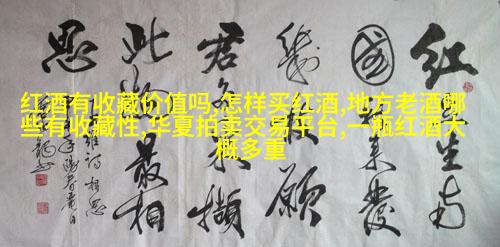 红酒有收藏价值吗,怎样买红酒,地方老酒哪
些有收藏性,华夏拍卖交易平台,一瓶红酒大
概多重
红豆生南
國春来發
幾枝願
君多采撷
此物最相
思